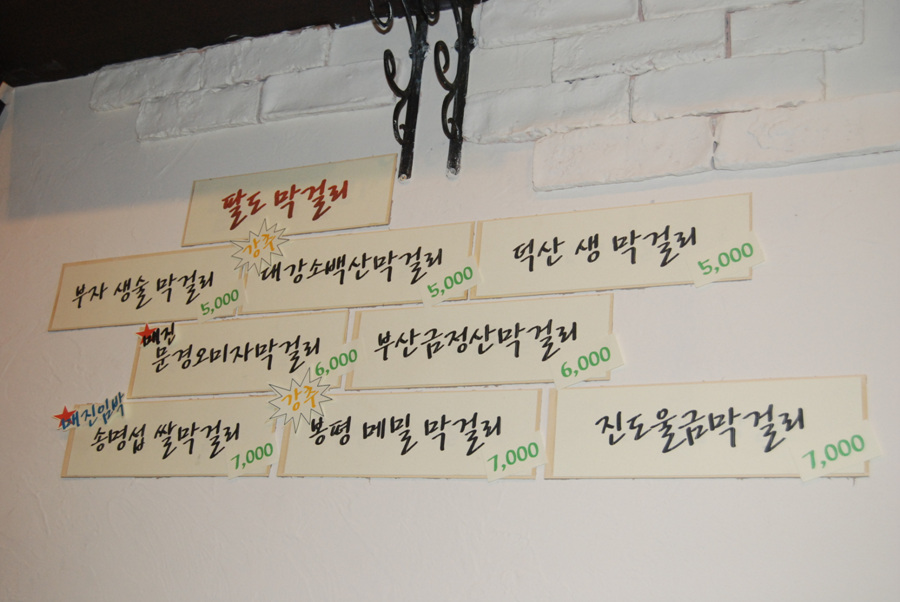 팔도 막걸리
부자 생술 막걸리 5,000
강추 대강소백산막걸리 5,000
덕산 생 막걸리 5,000
매진 문경오미자막걸리 6,000
부산금정산막걸리 6,000
매진임박 송명섭 쌀막걸리 7,000
강추 봉평 메밀 막걸리 7,000
진도울금막걸리 7,000